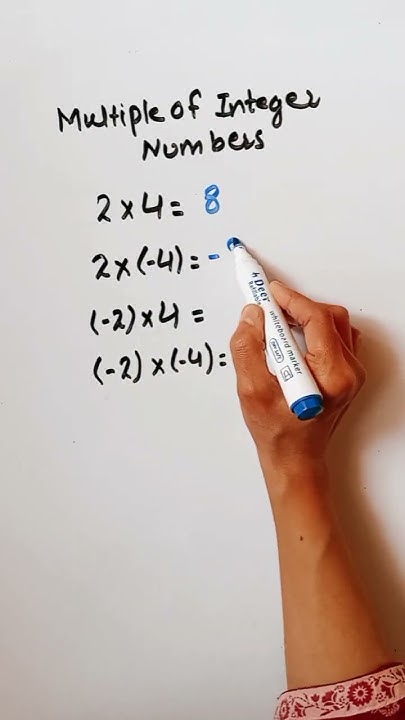 Multiple of Integer
Numbers
2 × 4 = 8
2 × (-4) = -
(-2) × 4 =
(-2) × (-4) =
whiteboard marker